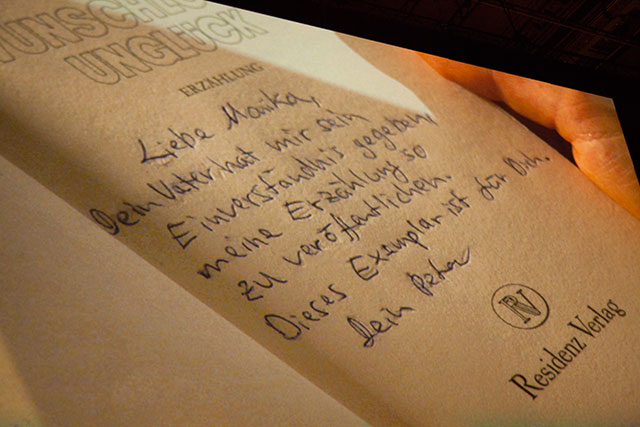 WUNSCHLOSES
UNGLÜCK
ERZÄHLUNG
Liebe Marika,
Dein Vater hat mir sein
Einverständnis gegeben,
meine Erzählung so
zu veröffentlichen.
Dieses Exemplar ist für Dich.
Dein Peter
RV
Residenz Verlag